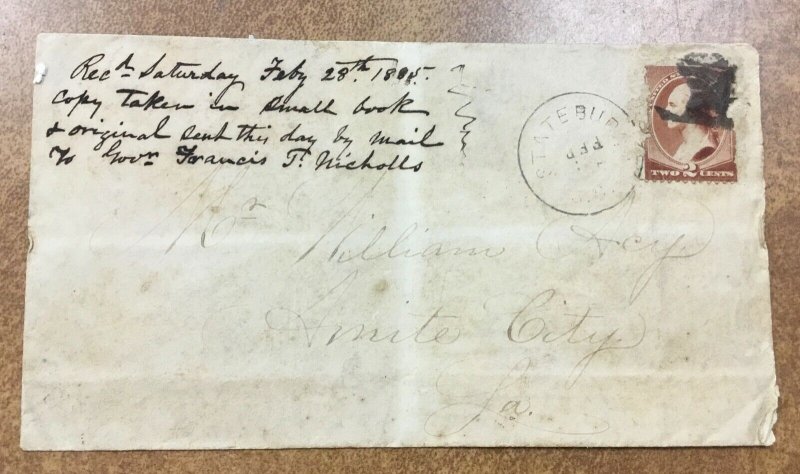 Recd Saturday Feby 28th 1885.
copy taken in small book
& original sent this day by mail
To Govr Francis T. Nicholls
STATEBUR
FEB
TWO 2 CENTS
Mr William Acy
Amite City
La.